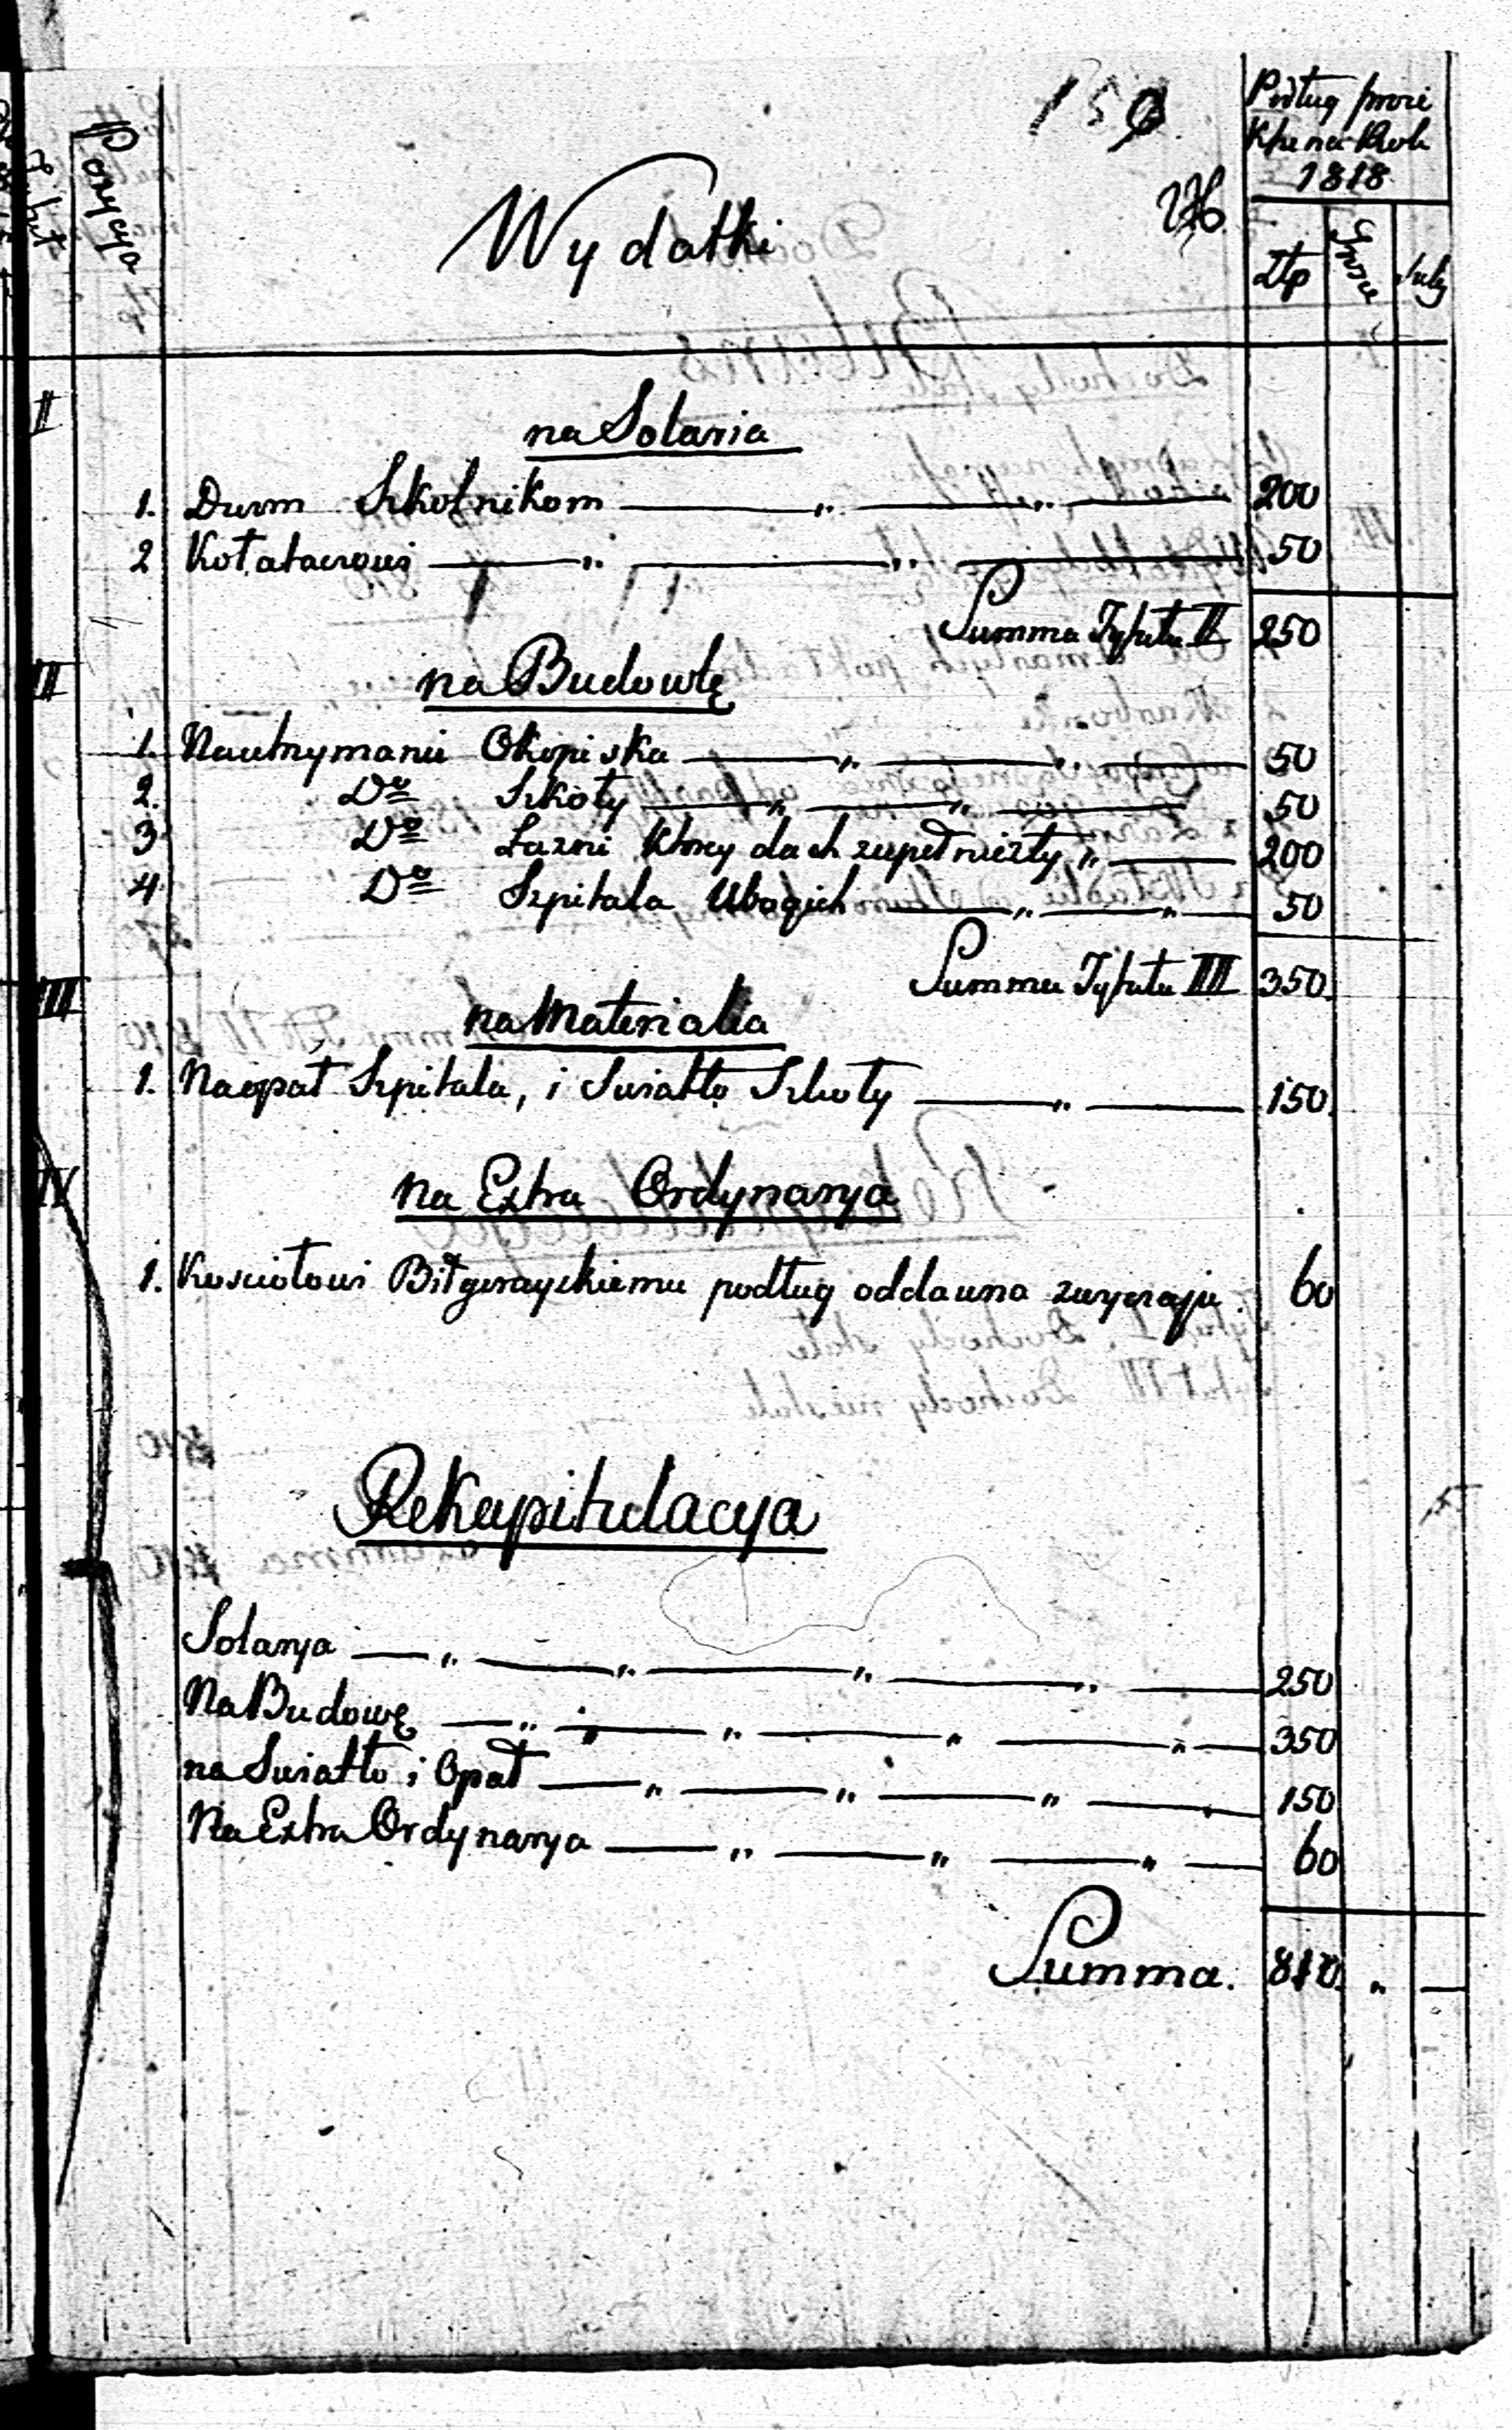 150
Podług proie
Ktu na Rok
1818
Tytuł
Pozycya
Wydatki
Złp
Grosze
II
na Solaria
1. Dwom Szkolnikom — „ — „ — 200
2 Kołataczowi — „ — „ — 50
Summa Tytułu II 250
II
na Budowlę
1. Na utrzymanie Okopiska — „ — „ — 50
2. Do Szkoły — „ — „ — 50
3 Do Łazni Ktorey dach zupełnie zły „ — 200
4 Do Szpitala Ubogich — „ — „ — 50
Summa Tytułu III 350.
III
na Materialia
1. Na opał Szpitala, i Swiatło Szkoły — „ — 150.
IV
Na Extra Ordynarya
1. Kosciołowi Biłgorayskiemu podług oddawna zwyczaju. 60
Rekapitulacya
Solarya — „ — „ — „ — „ — 250
Na Budowę — „ — „ — „ — „ — 350
na Swiatło i Opał — „ — „ — „ — 150
Na Extra Ordynarya — „ — „ — „ — 60
Summa. 810. „ —